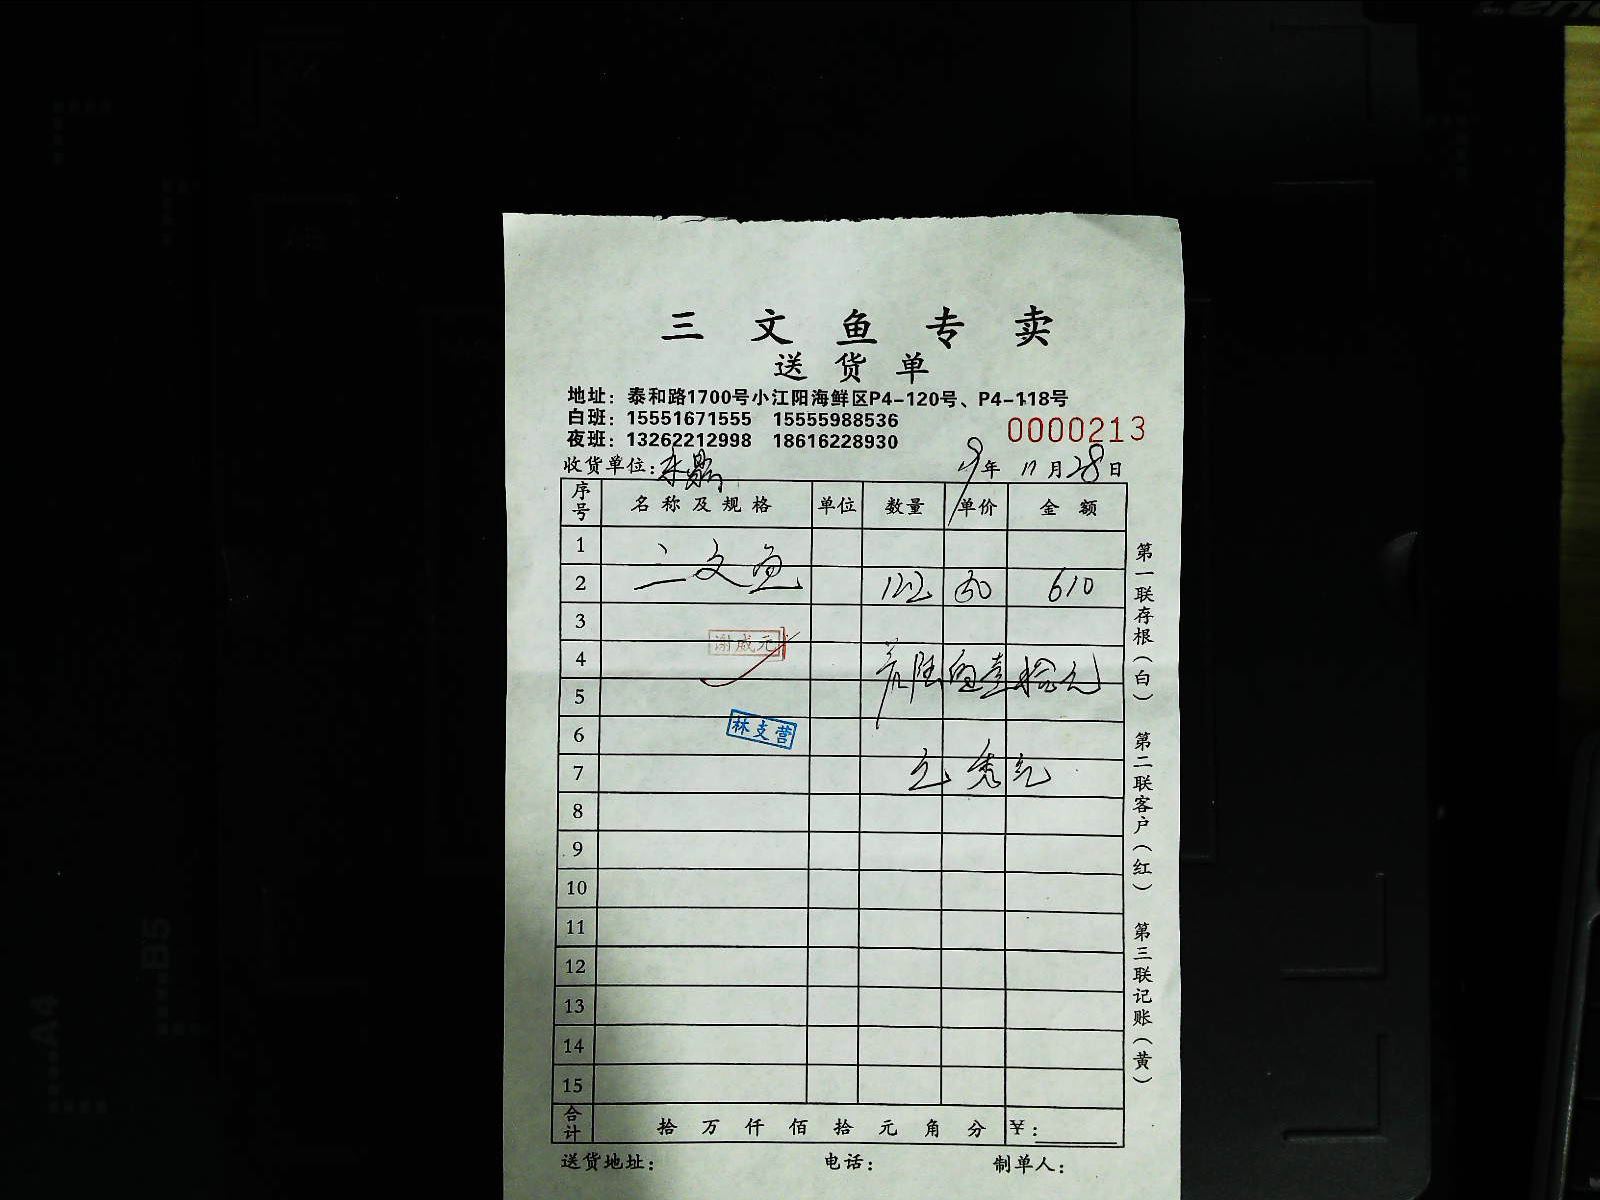 三文鱼专卖
送货单
地址：泰和路1700号小江阳海鲜区P4-120号、P4-118号
白班：15551671555 15555988536
夜班：13262212998 18616228930
0000213
收货单位： 19年11月28日
序号 名称及规格 单位 数量 单价 金额
1
2 三文鱼 12.2 50 610
3
谢成元
4 陆佰壹拾元
5
6 林支营
7
8
9
10
11
12
13
14
15
合计 拾 万 仟 佰 拾 元 角 分 ¥：
送货地址： 电话： 制单人：
第一联存根（白） 第二联客户（红） 第三联记账（黄）
A4
B5